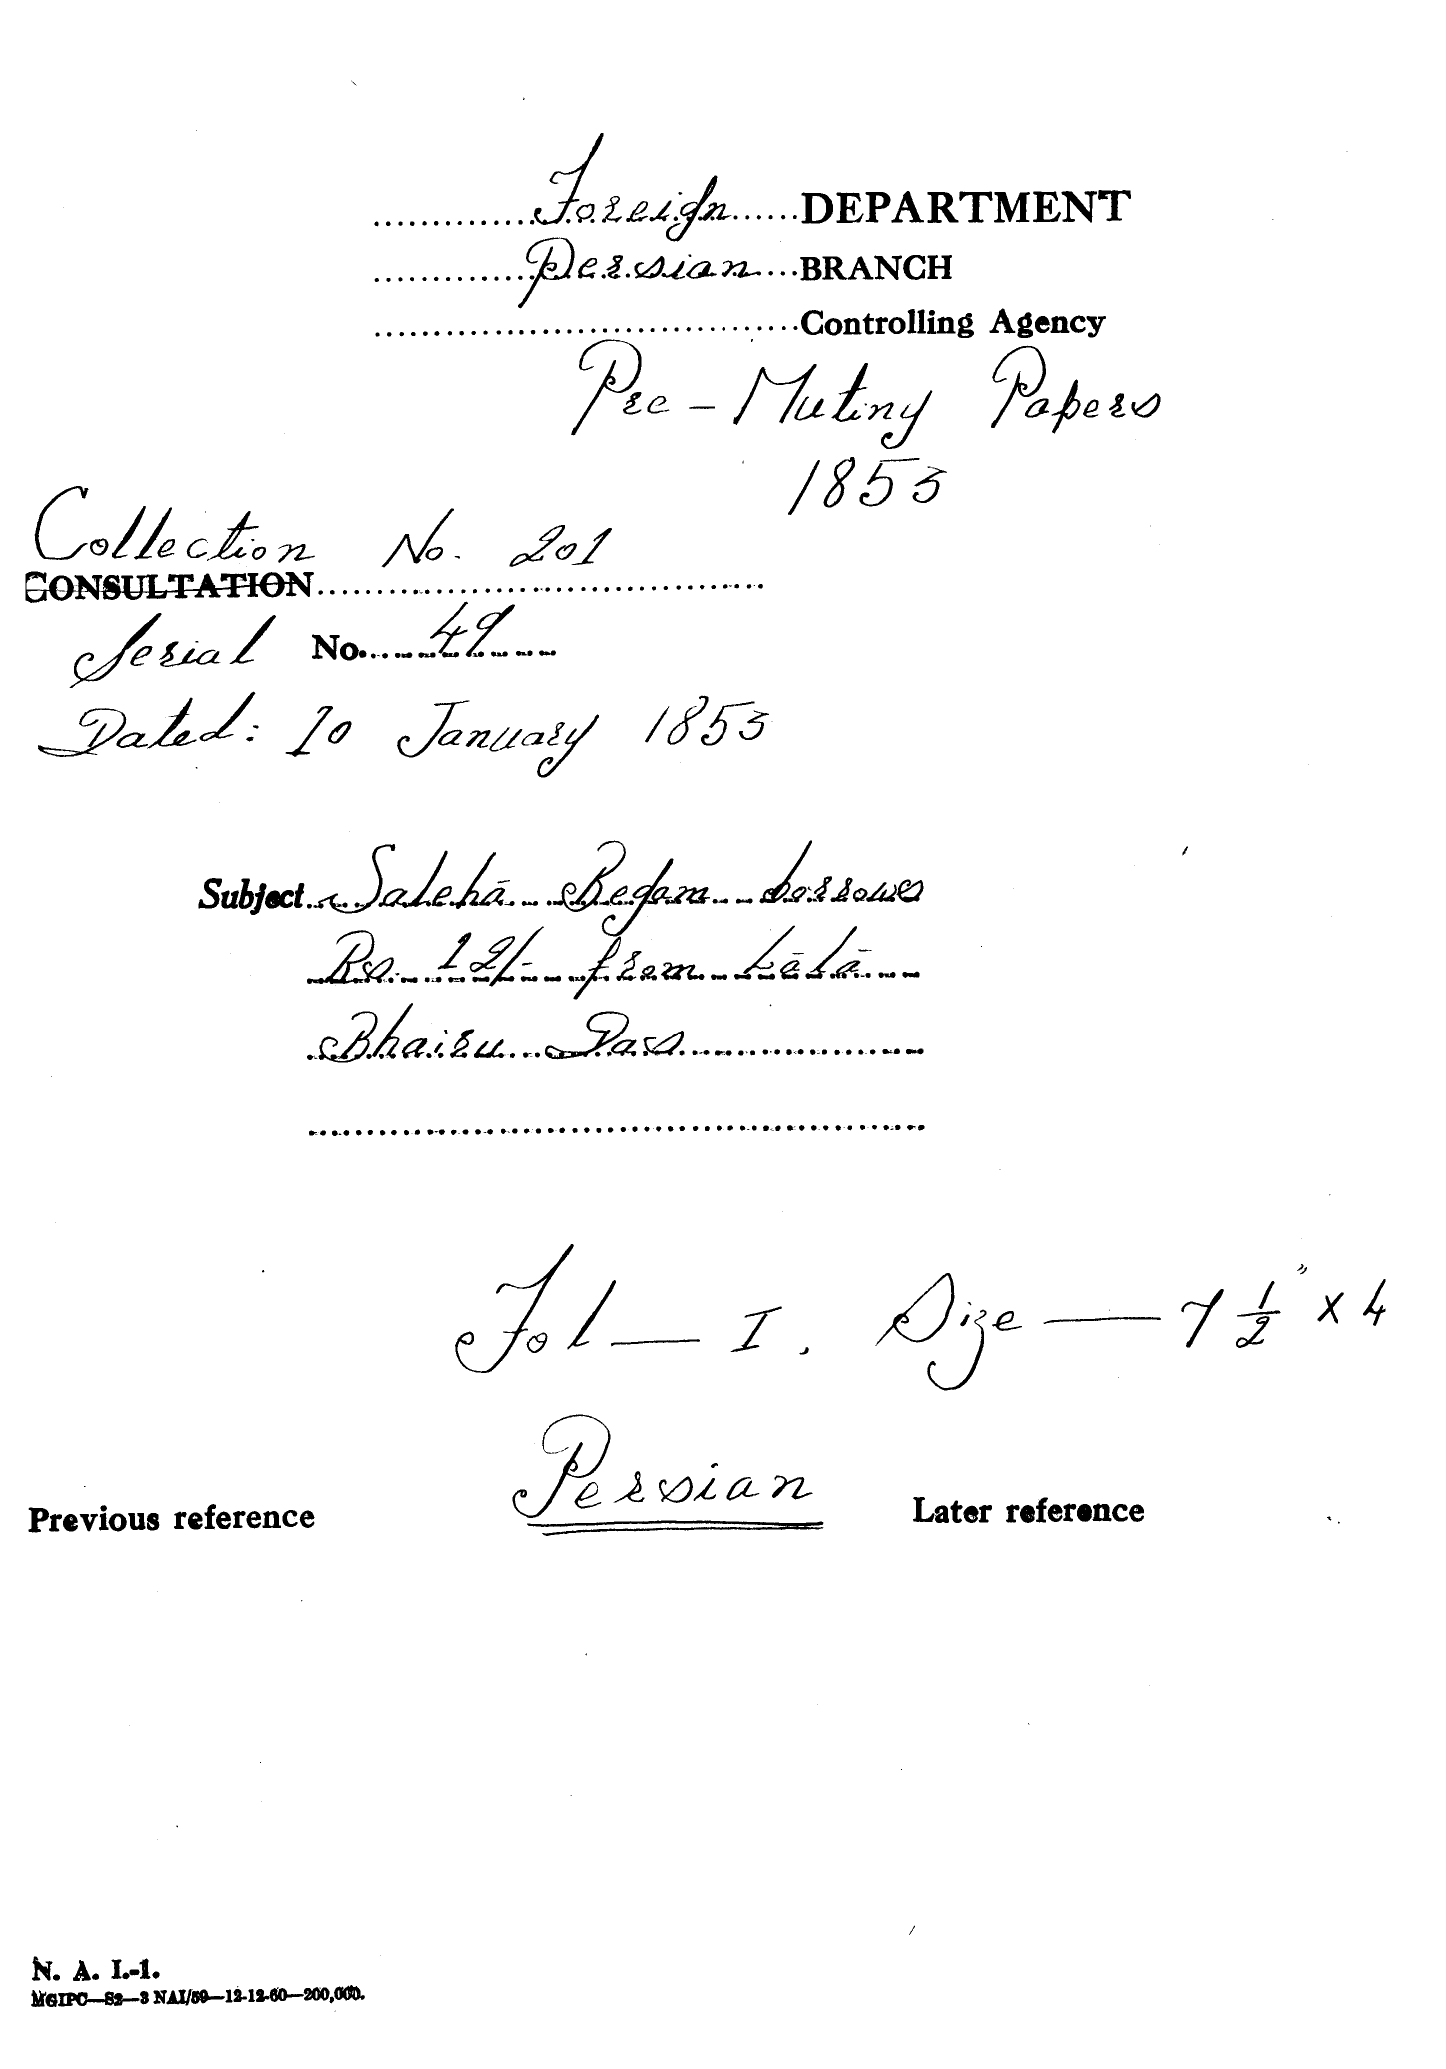 Foreign DEPARTMENT
Persian BRANCH
Controlling Agency
Pre - Mutiny Papers
1853
Collection No. 201
CONSULTATION
Serial No. 49
Dated: 10 January 1853
Subject Salehā Begam borrows
Rs. 12/- from Lālā
Bhairu Dass
Fol — I. Size — 7 1/2" x 4
Persian
Previous reference Later reference
N. A. I.-1.
MGIPC—S2—3 NAI/59—12-12-60—200,000.